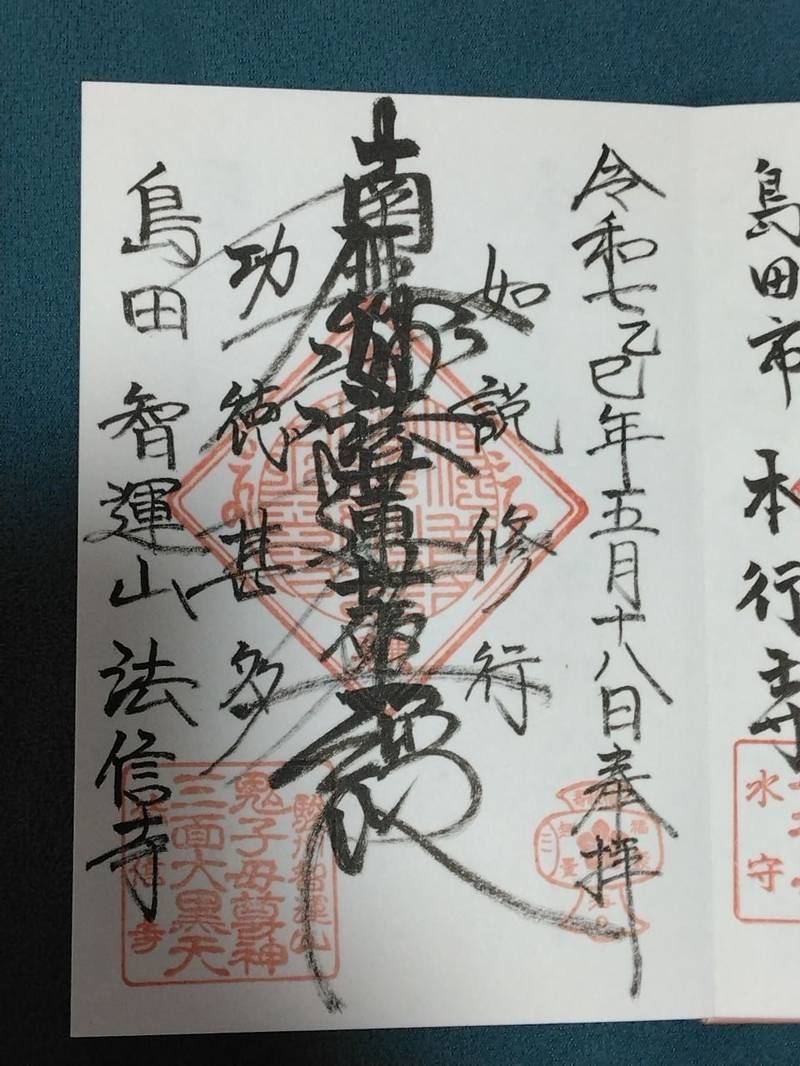 島田市 本行寺
水守
令和七乙巳年五月十八日奉拝
如説修行
南無妙法蓮華経
功徳甚多
島田 智運山 法信寺
駿州智運山
鬼子母尊神
三面大黒天